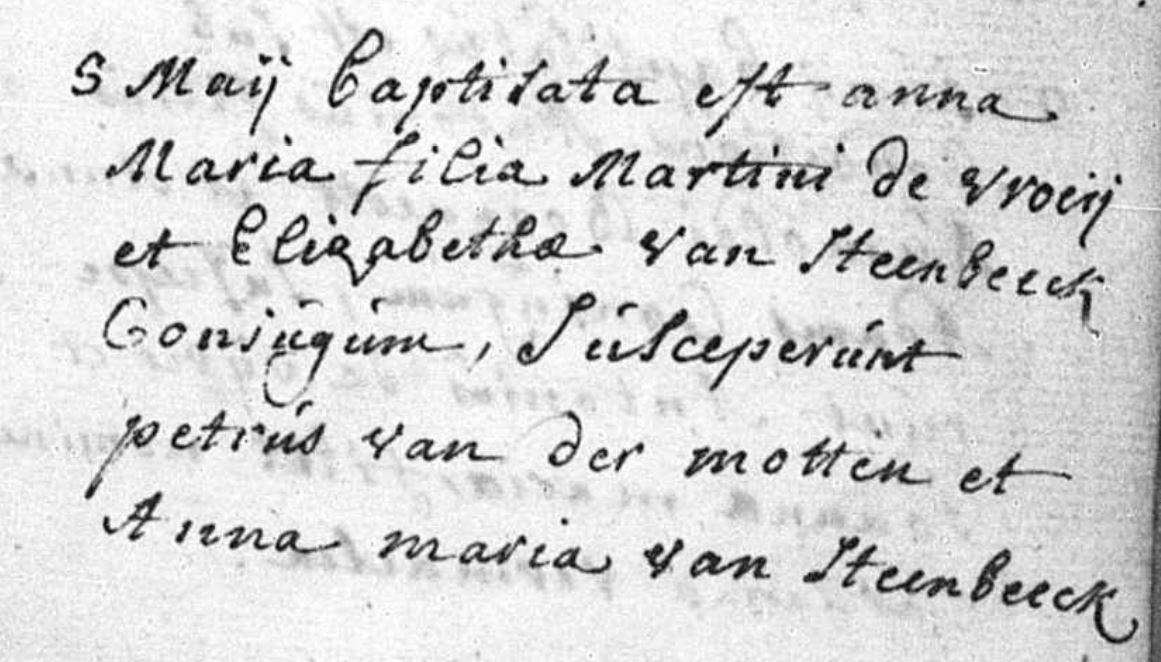 5 Maij baptisata est anna
Maria filia Martini de vroeij
et Elizabethæ van Steenbeeck
Conjugum, Susceperunt
petrus van der motten et
Anna maria van Steenbeeck